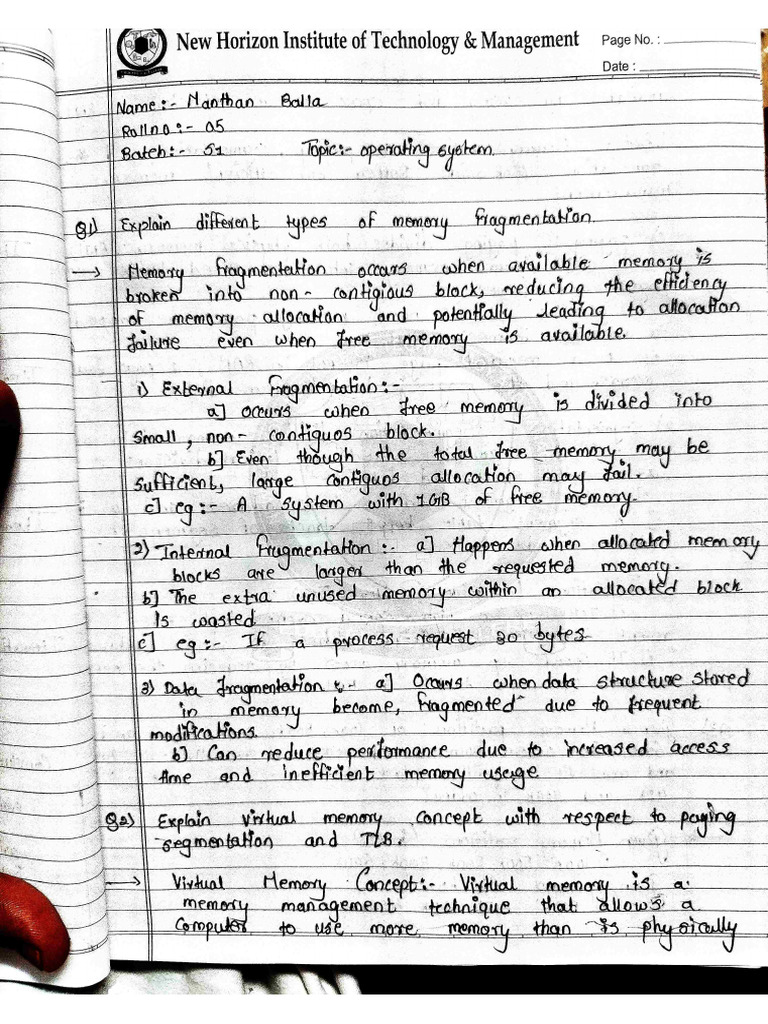 New Horizon Institute of Technology & Management
Page No. :
Date :
Name:- Manthan Balla
Rollno:- 05
Batch:- S1 Topic:- operating system.
Q1) Explain different types of memory fragmentation.
→ Memory fragmentation occurs when available memory is
broken into non-contigious block, reducing the efficiency
of memory allocation and potentially leading to allocation
failure even when free memory is available.
1) External fragmentation:-
a] occurs when free memory is divided into
small, non-contiguos block.
b] Even though the total free memory may be
sufficient, large contiguos allocation may fail.
c] eg:- A system with 1GB of free memory.
2) Internal fragmentation:- a] Happens when allocated memory
blocks are larger than the requested memory.
b] The extra unused memory within an allocated block
is wasted
c] eg:- If a process request 30 bytes
3) Data fragmentation:- a] Occurs when data structure stored
in memory become, fragmented due to frequent
modifications.
b] Can reduce performance due to increased access
time and inefficient memory usage
Q2) Explain virtual memory concept with respect to paging
segmentation and TLB.
→ Virtual Memory Concept:- Virtual memory is a
memory management technique that allows a
computer to use more memory than is physically